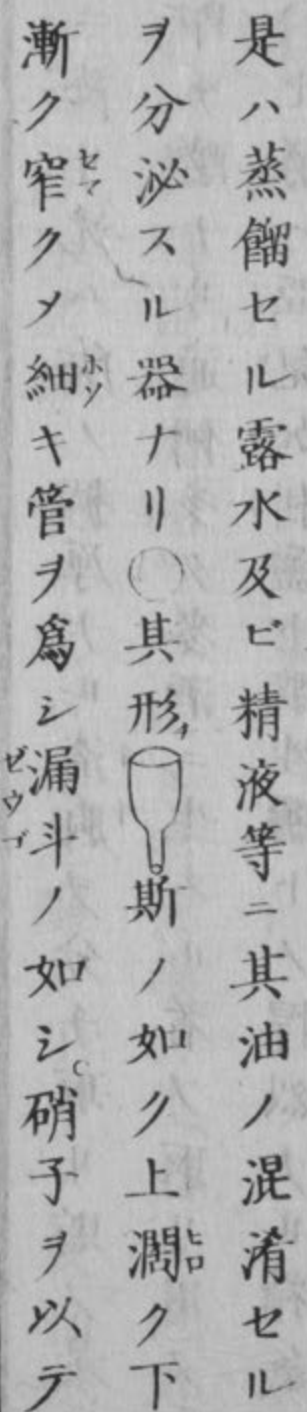 是ハ蒸餾セル露水及ビ精液等ニ其油ノ混淆セル
ヲ分泌スル器ナリ○其形斯ノ如ク上濶ク下
漸ク窄クメ細キ管ヲ爲シ漏斗ノ如シ。硝子ヲ以テ